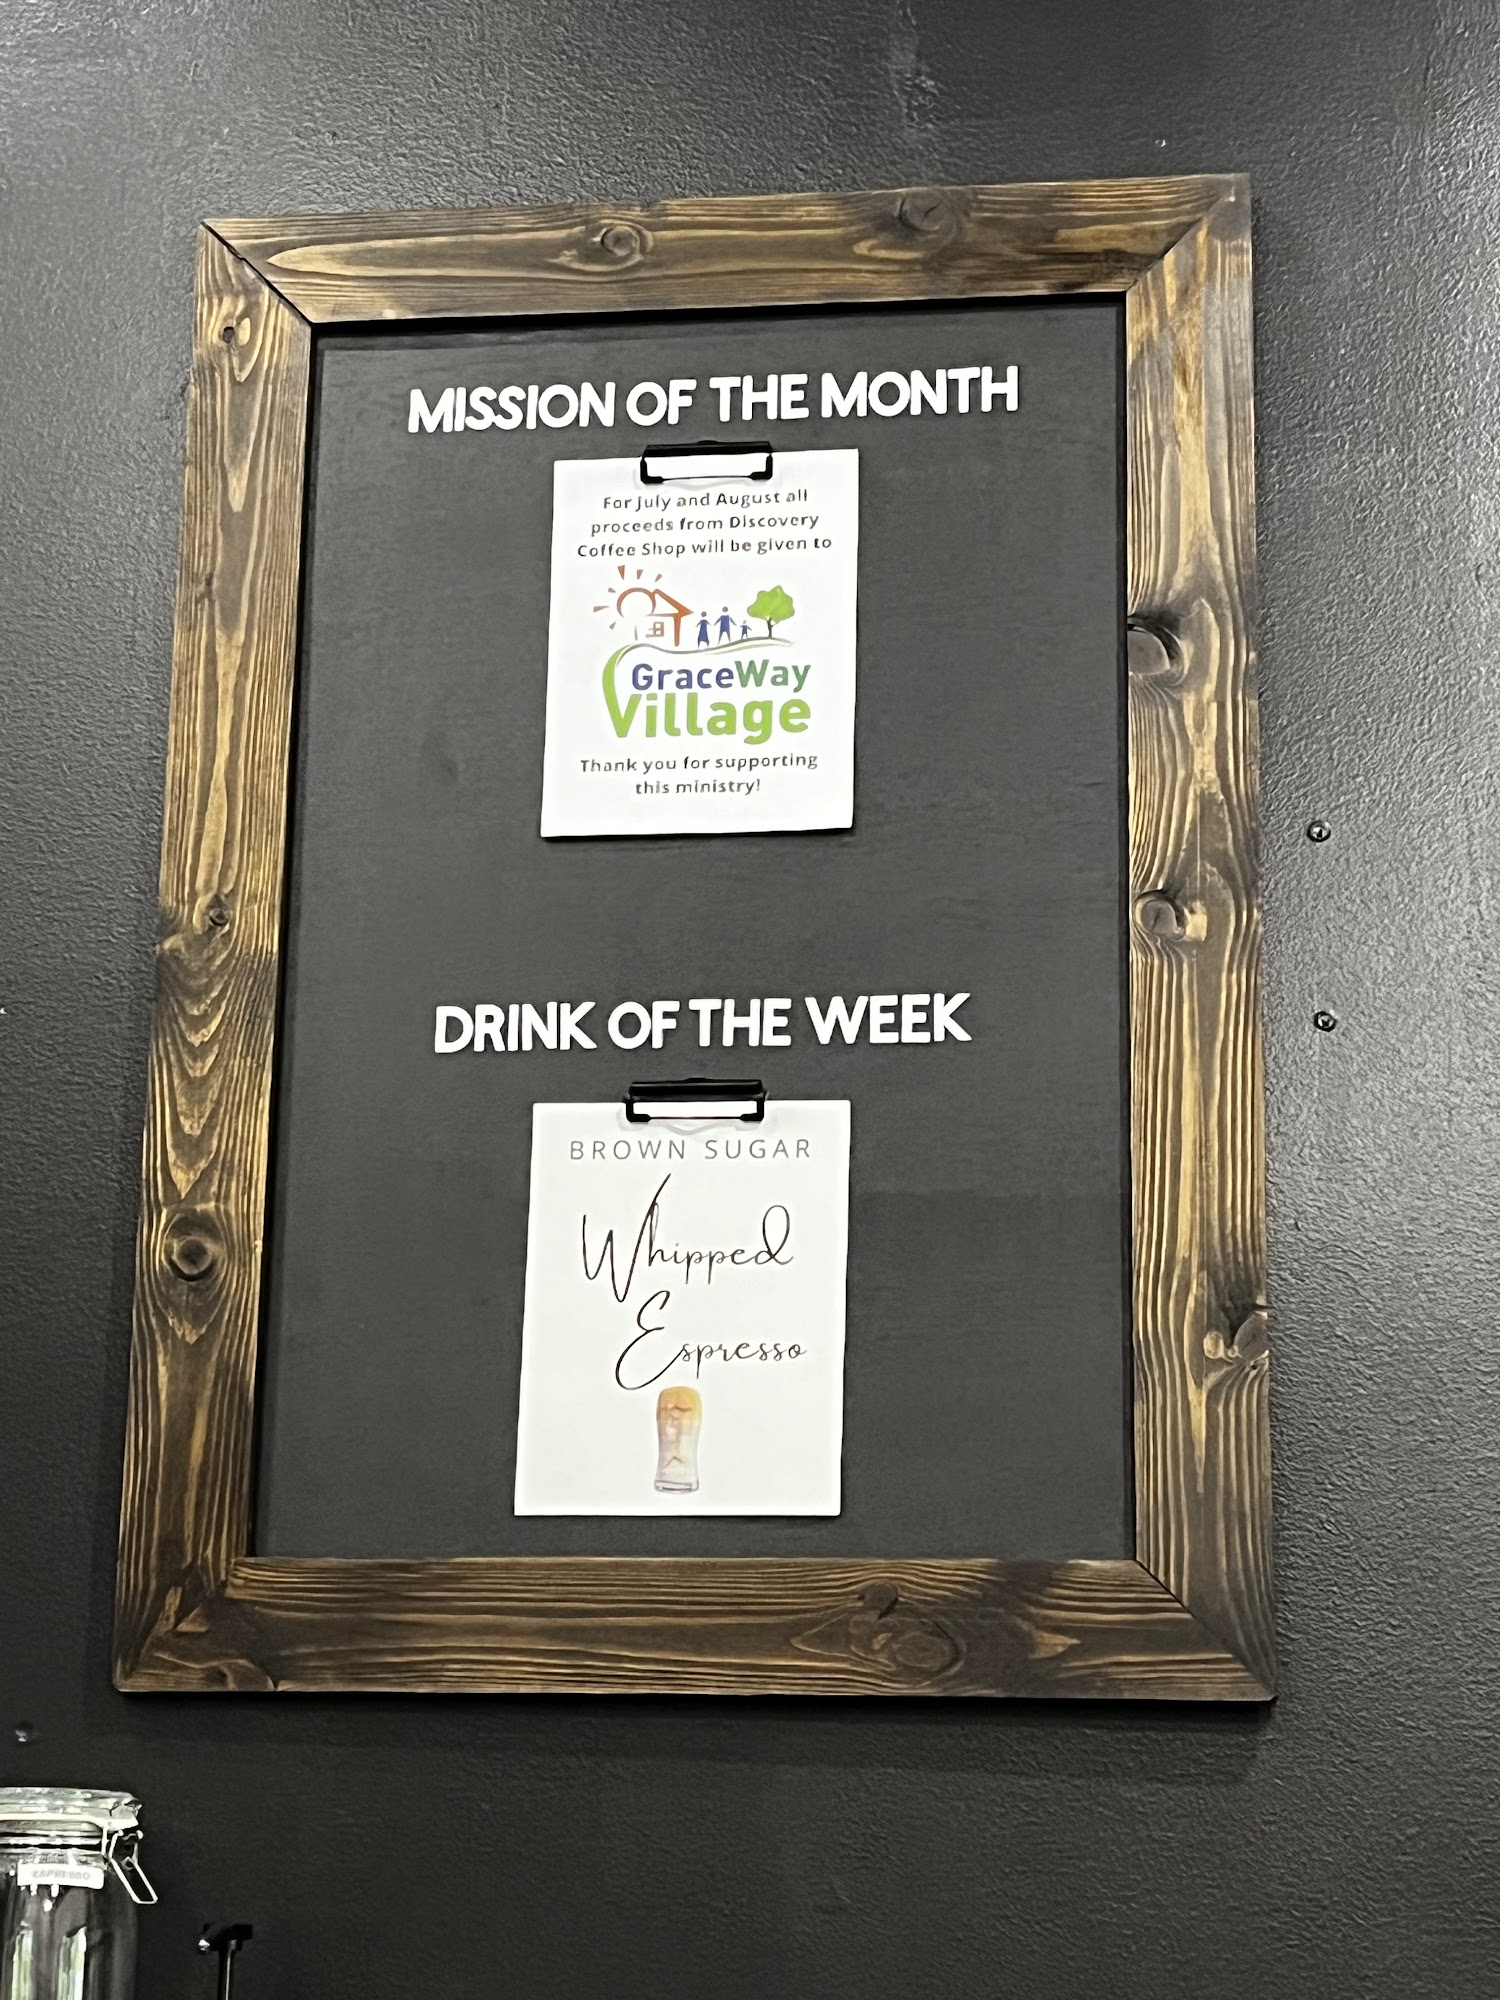 MISSION OF THE MONTH
For July and August all
proceeds from Discovery
Coffee Shop will be given to
GraceWay
Village
Thank you for supporting
this ministry!
DRINK OF THE WEEK
BROWN SUGAR
Whipped
Espresso
ESPRESSO